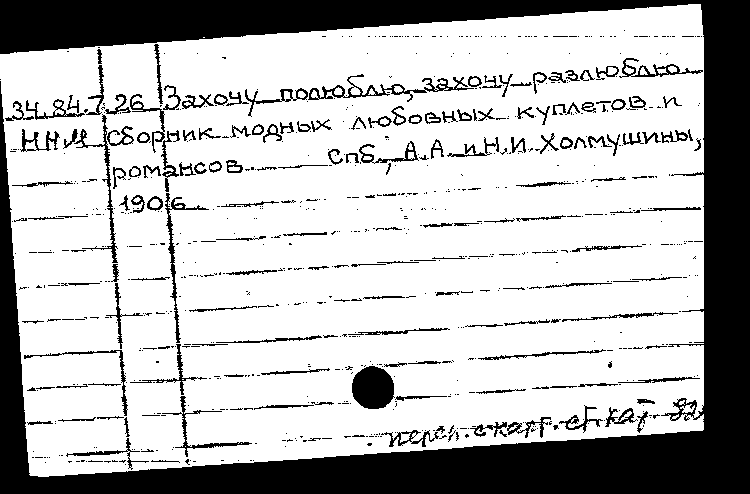 34.84.7.26 Захочу полюблю, захочу разлюблю.
ННМ сборник модных любовных куплетов и
романсов. Спб., А.А. и Н.И. Холмушины,
1906.
переп. с карт. ст. кат. 82